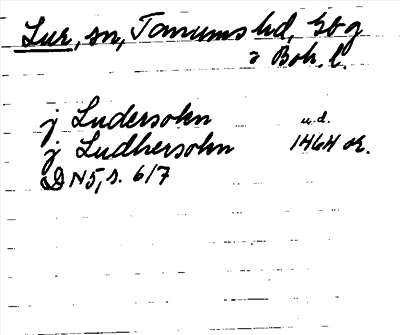 Lur, sn, Tanums hd, Gbg
o Boh. l.
j Ludersohn u.d.
j Ludhersohn 1464 or.
DN 5, s. 617